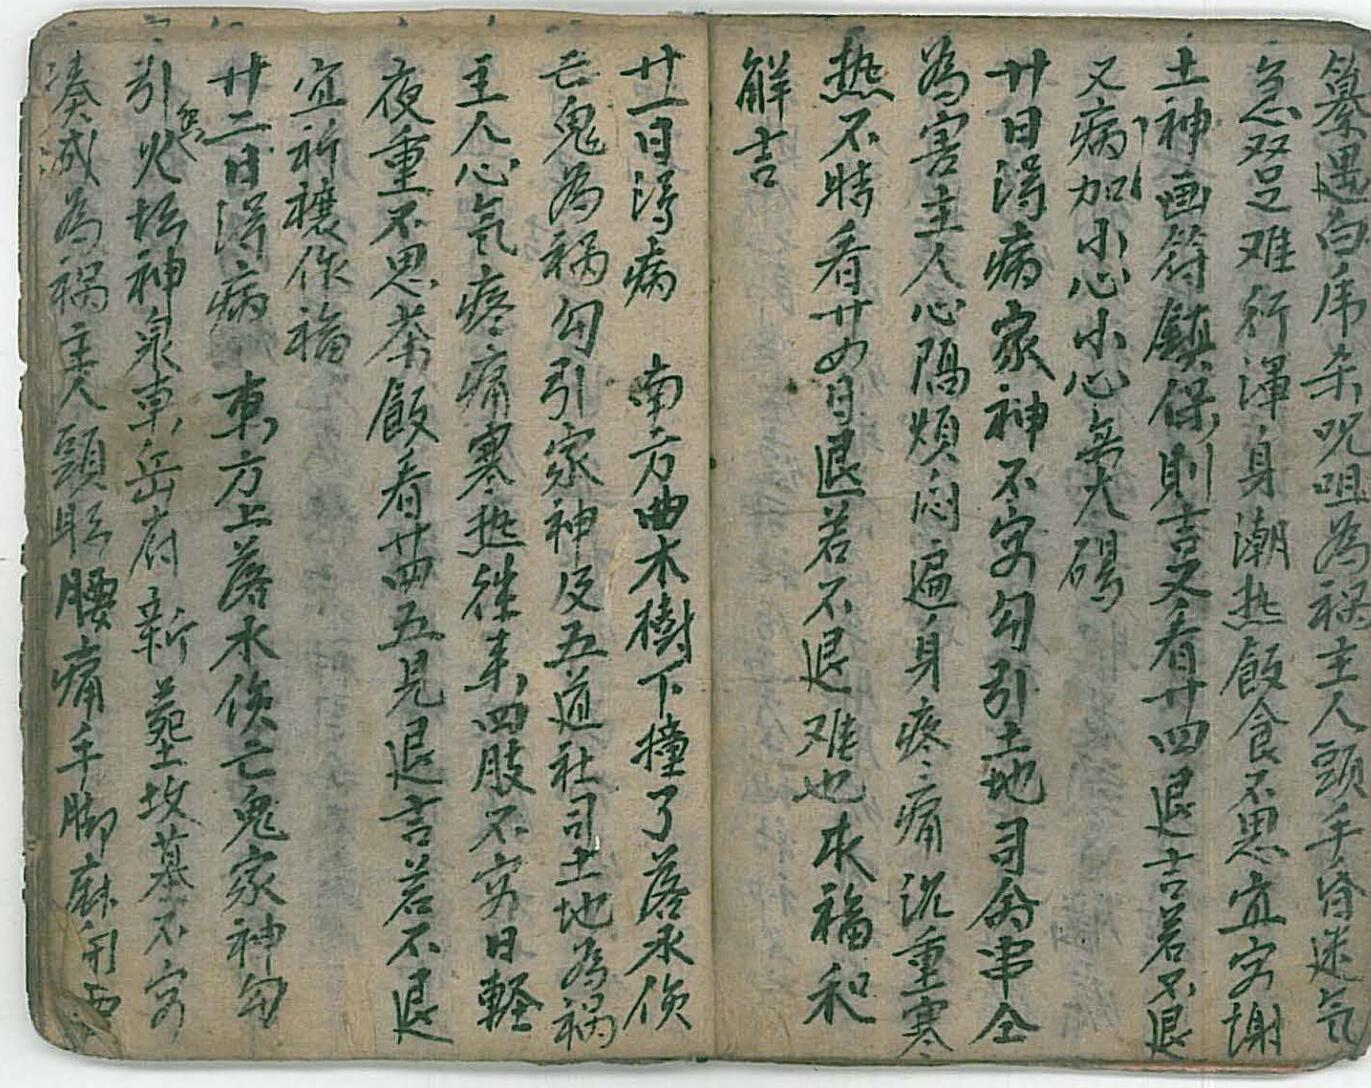 遇白虎杀咒咀為祸主人頭手昏迷气
急双足难行渾身潮热飯食不思宜安謝
土神画符鎮保則吉又看廿四退吉若不退
又病加小心小心無大碍
廿日得病家神不安勾引土地司命串仝
為害主人心隔煩闷遍身疼痛沉重寒
热不時看廿四日退若不退难也求福和
解吉
廿一日得病 南方曲木樹下撞了落水傷
亡鬼為祸勾引家神及五道社司土地為祸
主人心气疼痛寒热往来四肢不安日軽
夜重不思茶飯看廿四五見退吉若不退
宜祈禳作福
廿二日得病 東方上落水傷亡鬼家神勾
引火坛神泉東岳府新墓坟墓不安
為祸主人頭眩腰痛手脚麻